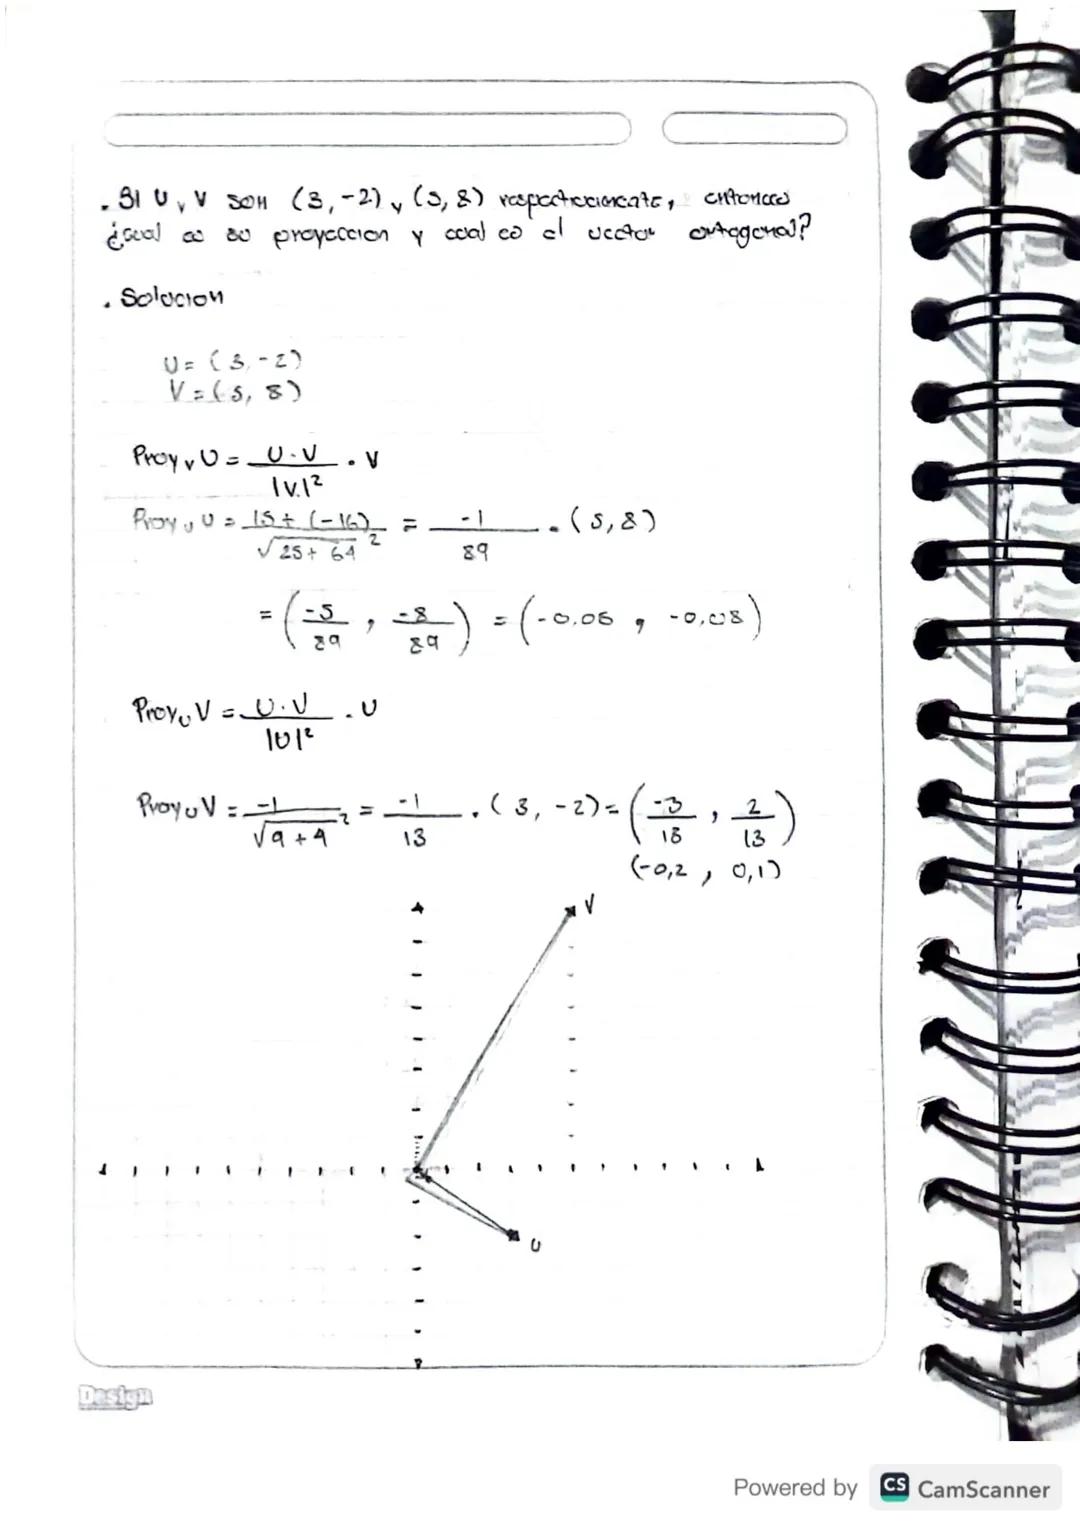 . Si U, V son (3, -2) y (5, 8) respectivamente, entonces
¿cual es su proyeccion y cual es el vector ortogonal?
. Solucion
U = (3, -2)
V = (5, 8)
Proy v U = U · V / |V|² · V
Proy v U = 15 + (-16) / √25 + 64 ² = -1 / 89 · (5, 8)
= (-5/89 , -8/89) = (-0,05 , -0,08)
Proy U V = U · V / |U|² · U
Proy U V = -1 / √9 + 4 ² = -1 / 13 · (3, -2) = (-3/13 , 2/13)
(-0,2 , 0,1)
V
U
Design
Powered by CS CamScanner